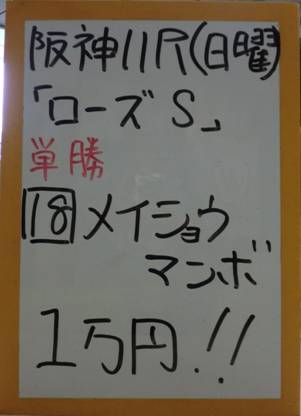 阪神11R(日曜)
「ローズS」
単勝
18 メイショウ
マンボ
1万円!!